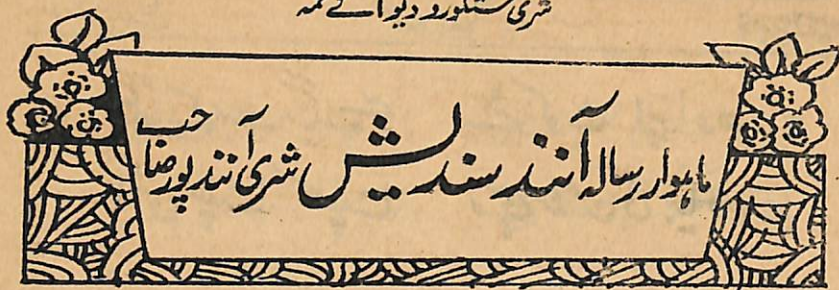 شری ستگورو دیوائے نمہ
ماہوار رسالہ آنند سندیش شری آنند پور صاحب